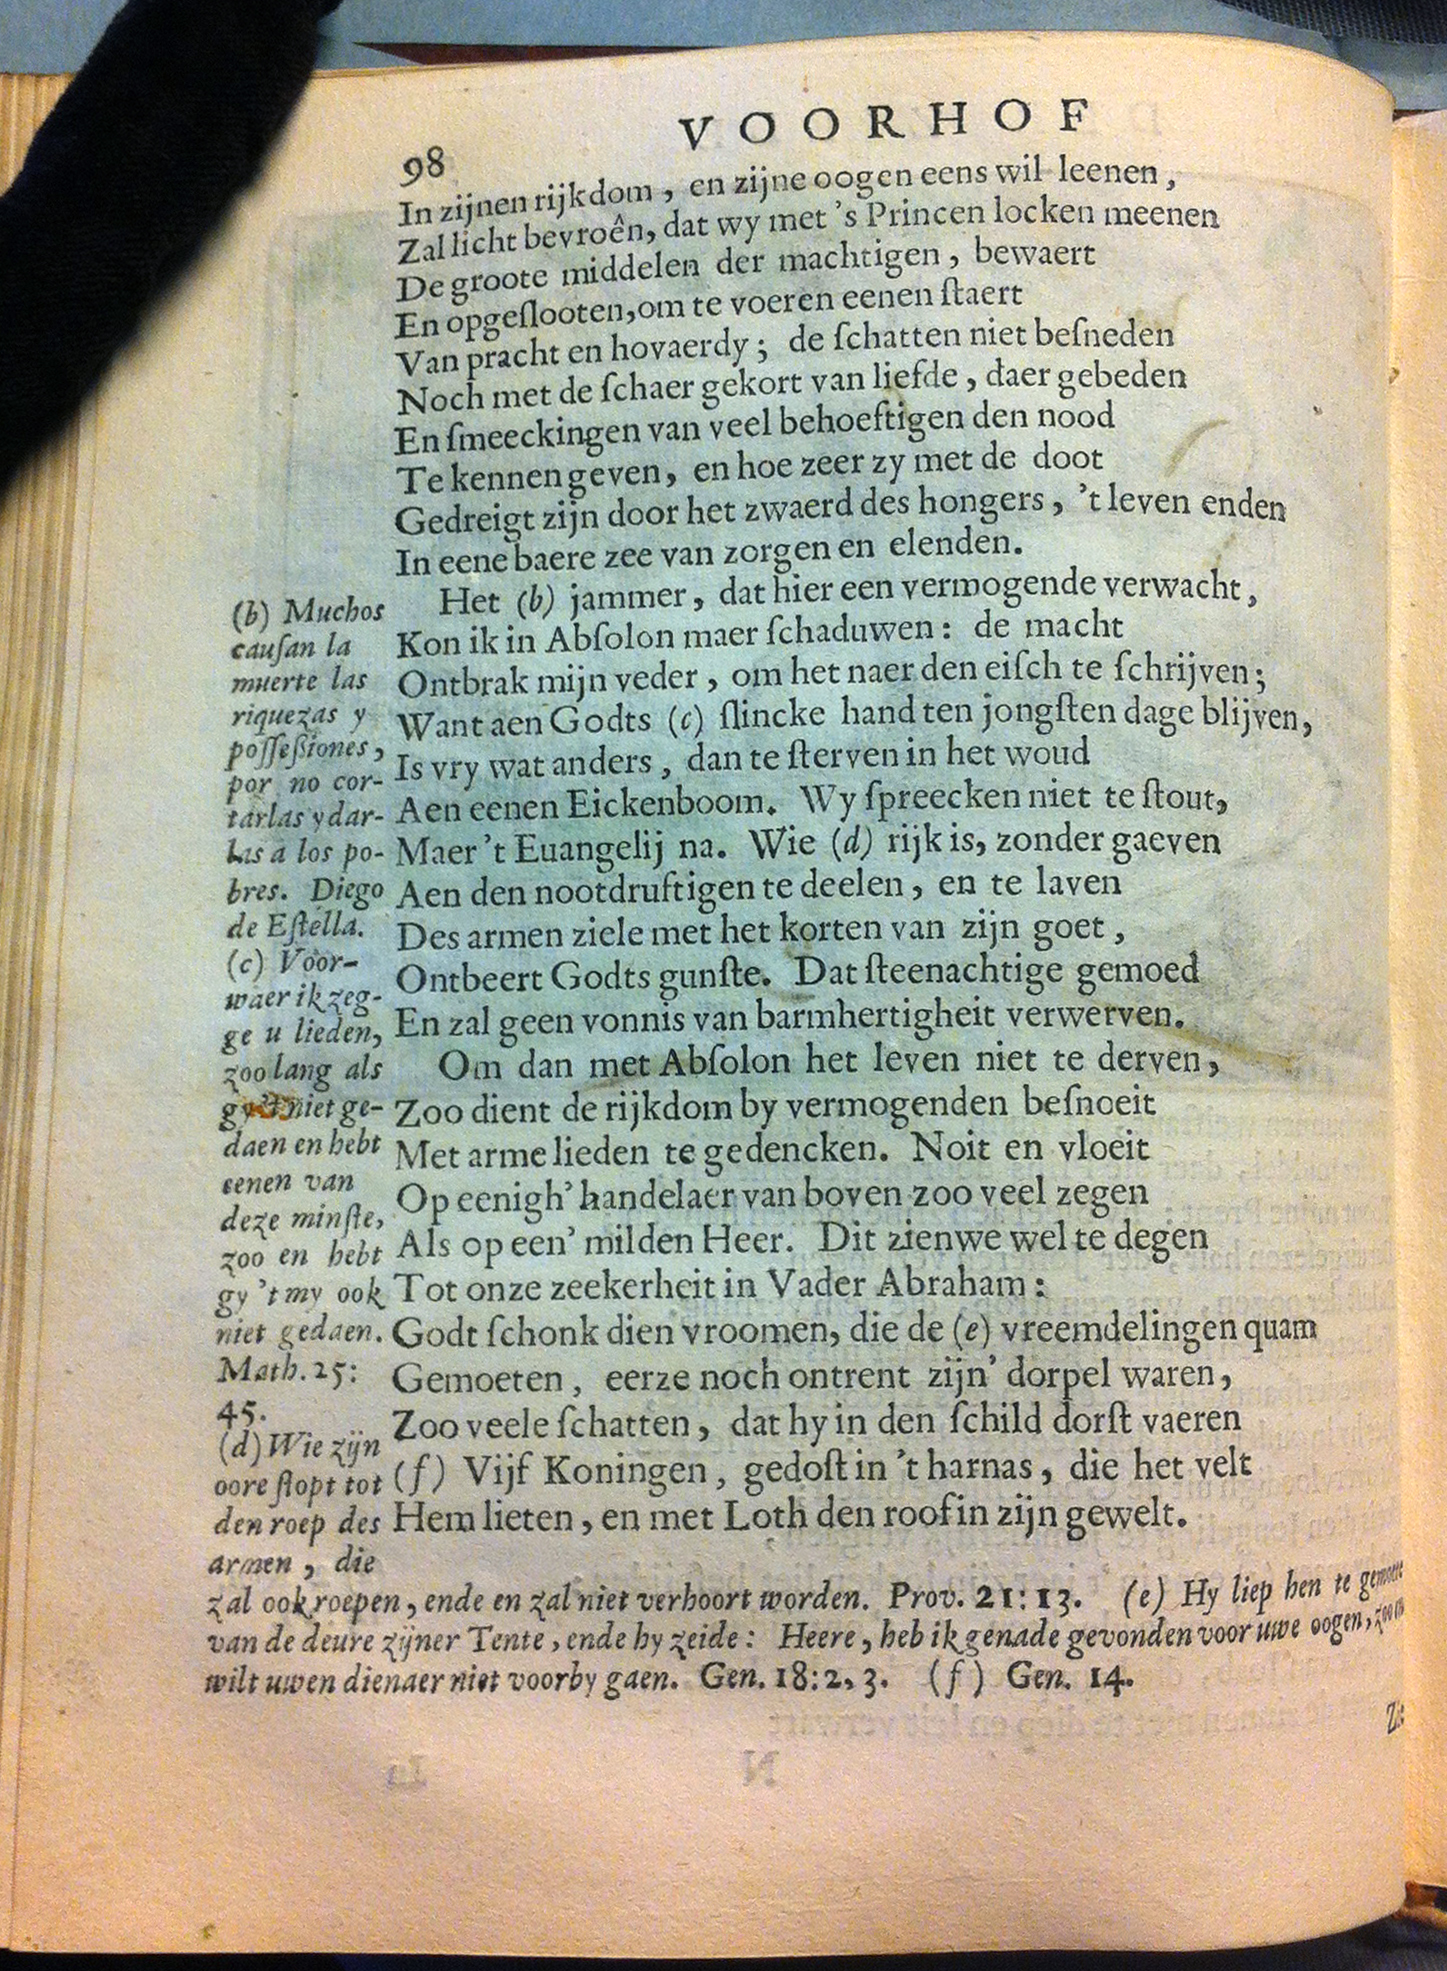 VOORHOF
98
In zijnen rijkdom, en zijne oogen eens wil leenen,
Zal licht bevroên, dat wy met 's Princen locken meenen
De groote middelen der machtigen, bewaert
En opgeſlooten, om te voeren eenen ſtaert
Van pracht en hovaerdy; de ſchatten niet beſneden
Noch met de ſchaer gekort van liefde, daer gebeden
En ſmeeckingen van veel behoeftigen den nood
Te kennen geven, en hoe zeer zy met de doot
Gedreigt zijn door het zwaerd des hongers, 't leven enden
In eene baere zee van zorgen en elenden.
Het (b) jammer, dat hier een vermogende verwacht,
Kon ik in Abſolon maer ſchaduwen: de macht
Ontbrak mijn veder, om het naer den eiſch te ſchrijven;
Want aen Godts (c) ſlincke hand ten jongſten dage blijven,
Is vry wat anders, dan te ſterven in het woud
Aen eenen Eickenboom. Wy ſpreecken niet te ſtout,
Maer 't Euangelij na. Wie (d) rijk is, zonder gaeven
Aen den nootdruftigen te deelen, en te laven
Des armen ziele met het korten van zijn goet,
Ontbeert Godts gunſte. Dat ſteenachtige gemoed
En zal geen vonnis van barmhertigheit verwerven.
Om dan met Abſolon het leven niet te derven,
Zoo dient de rijkdom by vermogenden beſnoeit
Met arme lieden te gedencken. Noit en vloeit
Op eenigh' handelaer van boven zoo veel zegen
Als op een' milden Heer. Dit zien we wel te degen
Tot onze zeekerheit in Vader Abraham:
Godt ſchonk dien vroomen, die de (e) vreemdelingen quam
Gemoeten, eerze noch ontrent zijn' dorpel waren,
Zoo veele ſchatten, dat hy in den ſchild dorſt vaeren
(f) Vijf Koningen, gedoſt in 't harnas, die het velt
Hem lieten, en met Loth den roof in zijn gewelt.
(b) Muchos
cauſan la
muerte las
riquezas y
poſſeßiones,
por no cor-
tarlas y dar-
las a los po-
bres. Diego
de Eſtella.
(c) Voor-
waer ik zeg-
ge u lieden,
zoo lang als
niet ge-
daen en hebt
eenen van
deze minſte,
zoo en hebt
gy 't my ook
niet gedaen.
Math. 25:
45.
(d) Wie zijn
oore ſtopt tot
den roep des
armen, die
zal ook roepen, ende en zal niet verhoort worden. Prov. 21:13. (e) Hy liep hen te gemoete
van de deure zijner Tente, ende hy zeide: Heere, heb ik genade gevonden voor uwe oogen,
wilt uwen dienaer niet voorby gaen. Gen. 18:2, 3. (f) Gen. 14.